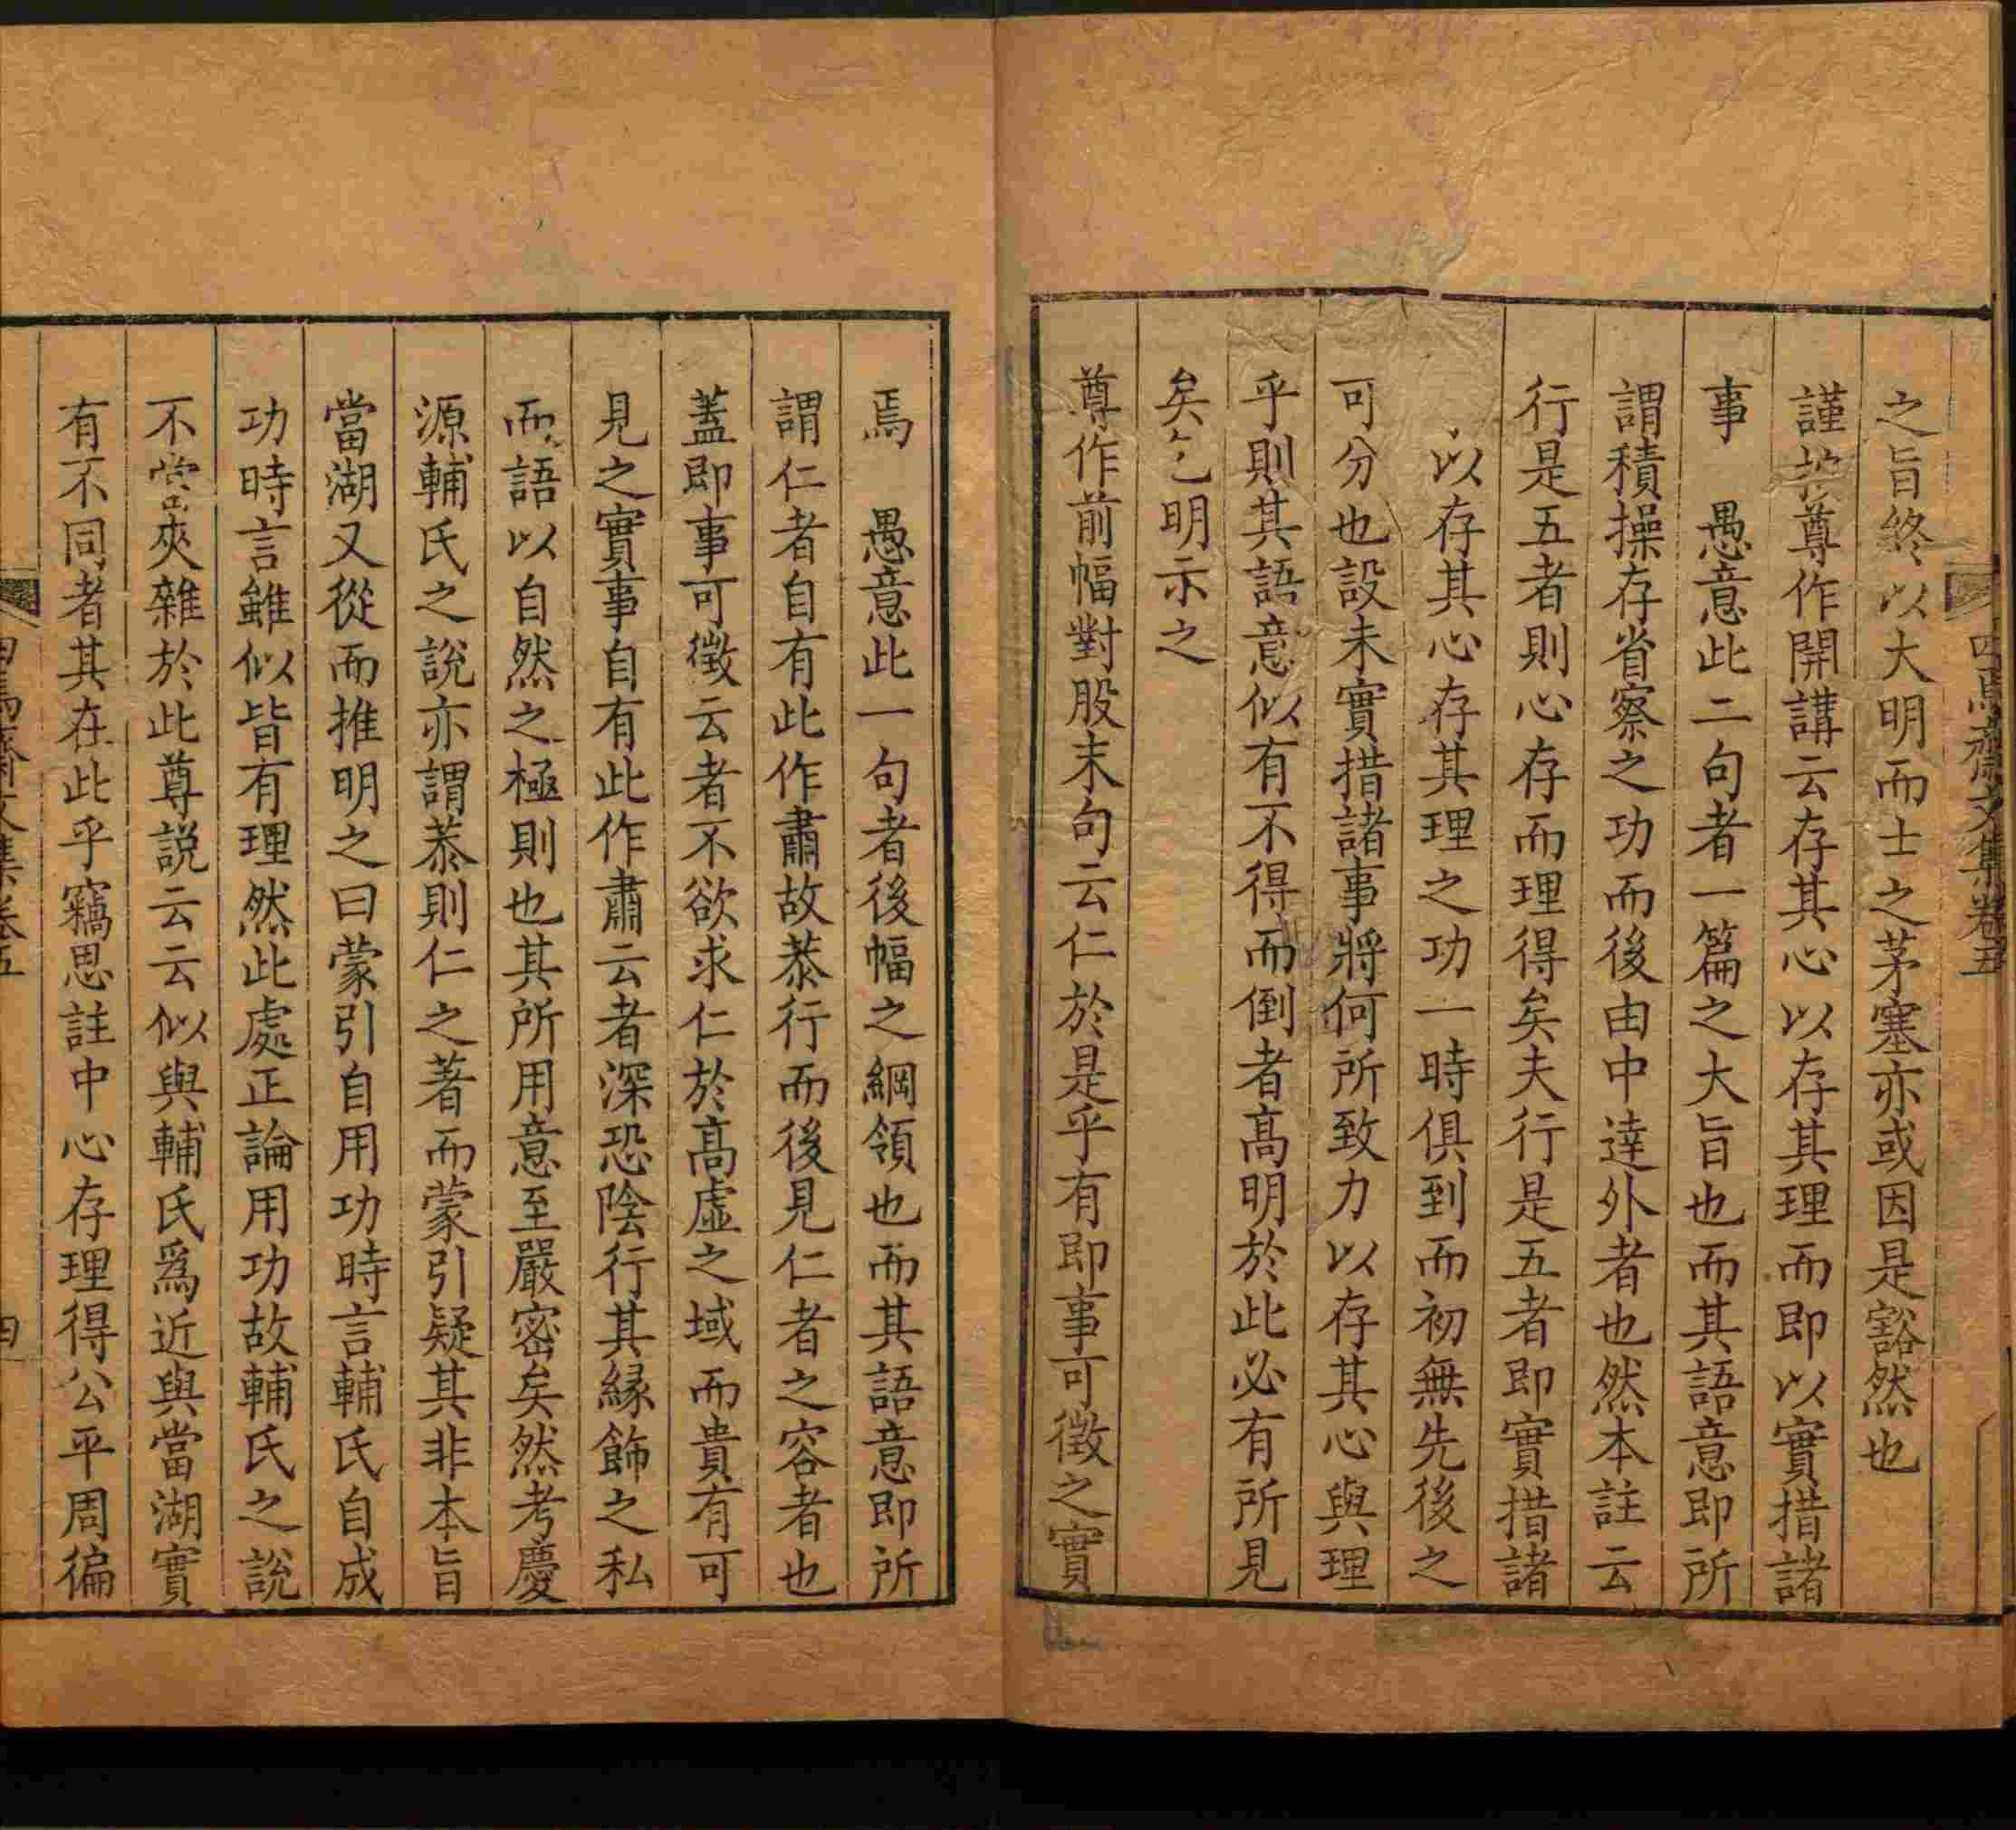 四焉齋文集卷五
之旨終以大明而士之茅塞亦或因是豁然也
謹按尊作開講云存其心以存其理而即以實措諸
事　愚意此二句者一篇之大旨也而其語意即所
謂積操存省察之功而後由中達外者也然本註云
行是五者則心存而理得矣夫行是五者即實措諸
以存其心存其理之功一時俱到而初無先後之
可分也設未實措諸事將何所致力以存其心與理
乎則其語意似有不得而倒者高明於此必有所見
矣乞明示之
尊作前幅對股末句云仁於是乎有即事可徵之實
焉　愚意此一句者後幅之綱領也而其語意即所
謂仁者自有此作肅故恭行而後見仁者之容者也
蓋即事可徵云者不欲求仁於高虛之域而貴有可
見之實事自有此作肅云者深恐陰行其緣飾之私
而語以自然之極則也其所用意至嚴密矣然考慶
源輔氏之說亦謂恭則仁之著而蒙引疑其非本旨
當湖又從而推明之曰蒙引自用功時言輔氏自成
功時言雖似皆有理然此處正論用功故輔氏之說
不當夾雜於此尊説云云似與輔氏爲近與當湖實
有不同者其在此乎竊思註中心存理得公平周徧
四焉齋文集卷五
四